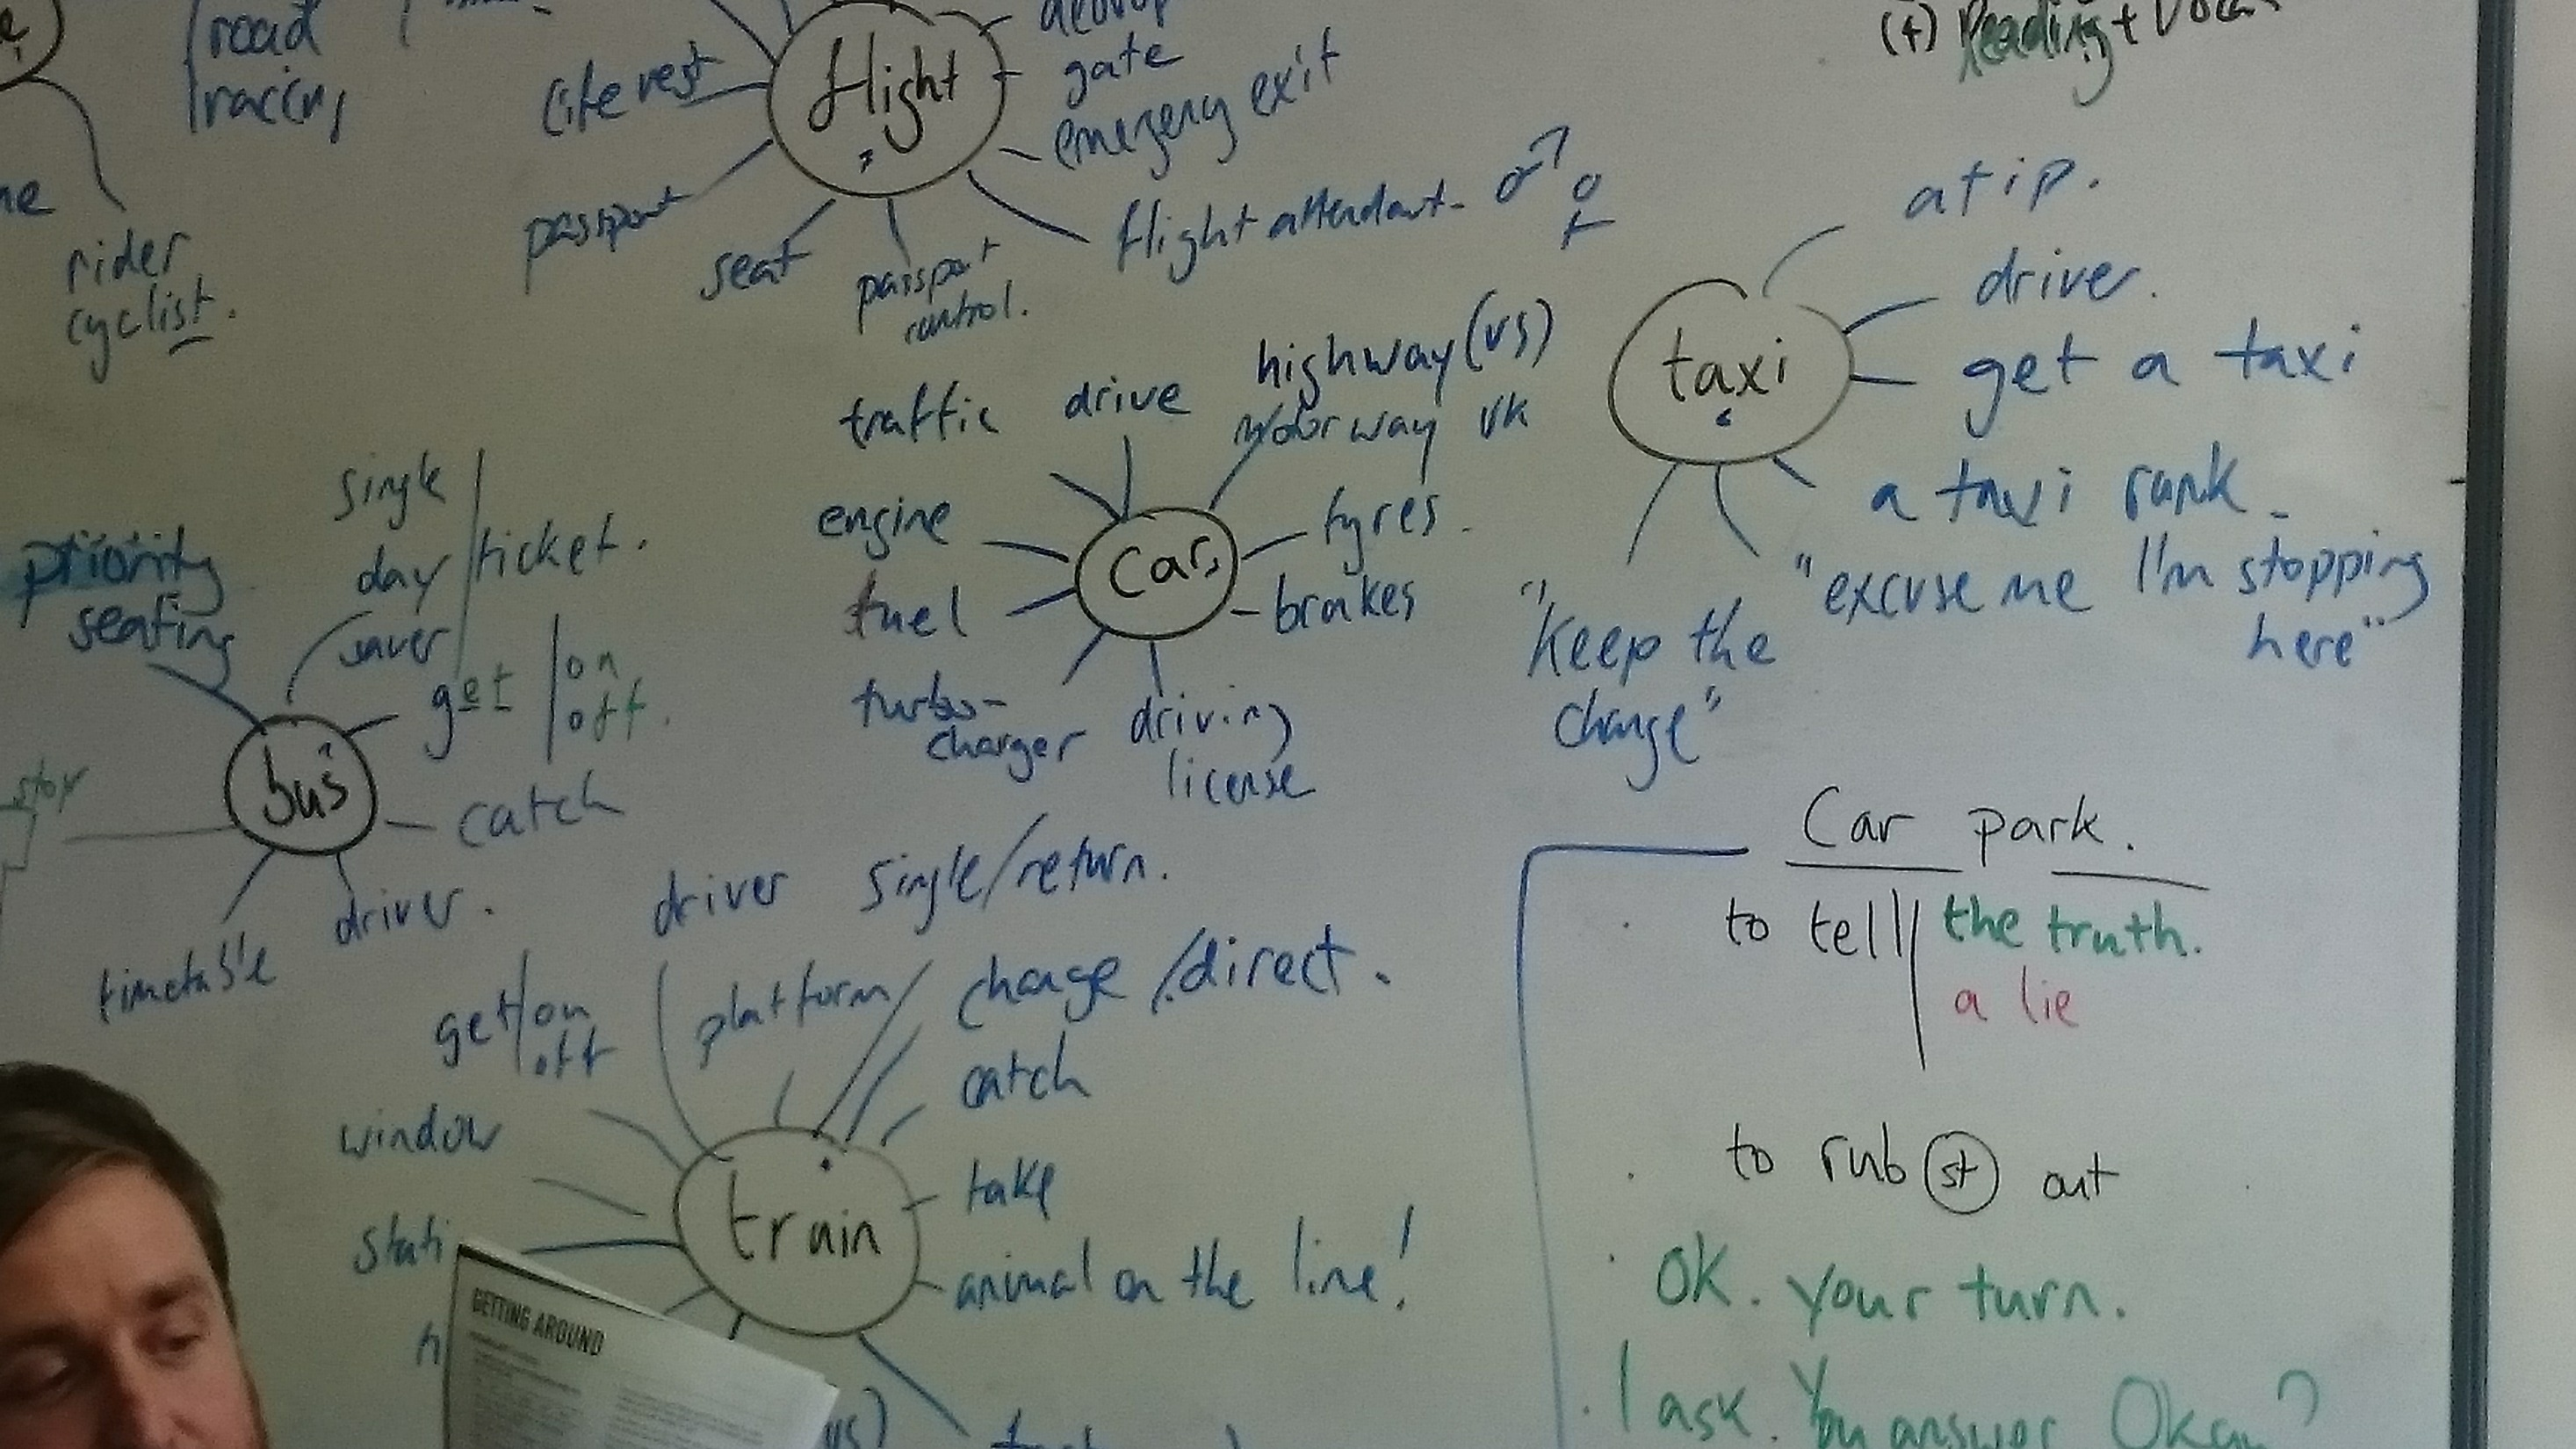 road
racing
rider
cyclist.
flight
life vest
passport
seat
passport
control.
gate
emergency exit
flight attendant - ♂ ♀
(4) Reading +
taxi
a tip.
driver.
get a taxi
a taxi rank.
"excuse me I'm stopping
here"
"keep the
change"
car
traffic
drive
highway (US)
motorway UK
engine
tyres.
fuel
brakes
turbo-
charger
driving
license
bus
priority
seating
single
day
saver
ticket.
get on
off.
catch
stop
timetable
driver.
train
driver
single/return.
get on
off
platform
change/direct.
catch
window
take
animal on the line!
GETTING AROUND
Car park.
to tell the truth.
a lie
to rub (st) out
OK. Your turn.
I ask. You answer Okay?